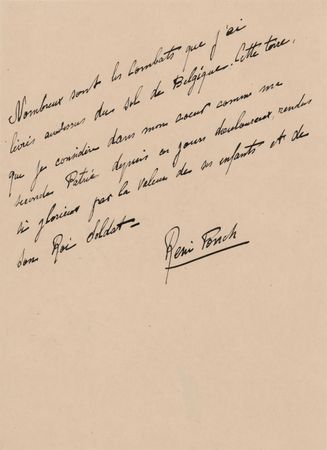 Nombreux sont les combats que j'ai
livrés audessus du sol de Belgique. Cette terre,
que je considère dans mon coeur comme ma
seconde Patrie depuis ces jours douloureux, rendus
si glorieux par la valeur de ses enfants et de
son Roi Soldat -
René Fonck